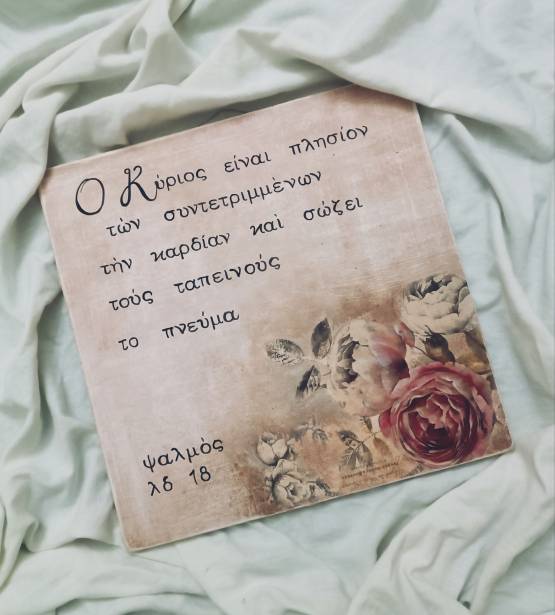 Ο Κύριος είναι πλησίον
τών συντετριμμένων
τὴν καρδίαν καὶ σώζει
τούς ταπεινούς
το πνεύμα
ψαλμὸς
λδ 18